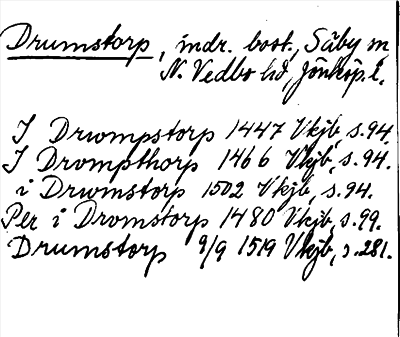 Drumstorp, indr. bost., Säby sn
N. Vedbo hd, Jönköp. l.
I Drwompstorp 1447 Vkjb, s. 94.
I Drompthorp 1466 Vkjb, s. 94.
i Drwmstorp 1502 Vkjb, s. 94.
Per i Dromstorp 1480 Vkjb, s. 99.
Drumstorp 9/9 1519 Vkjb, s. 281.